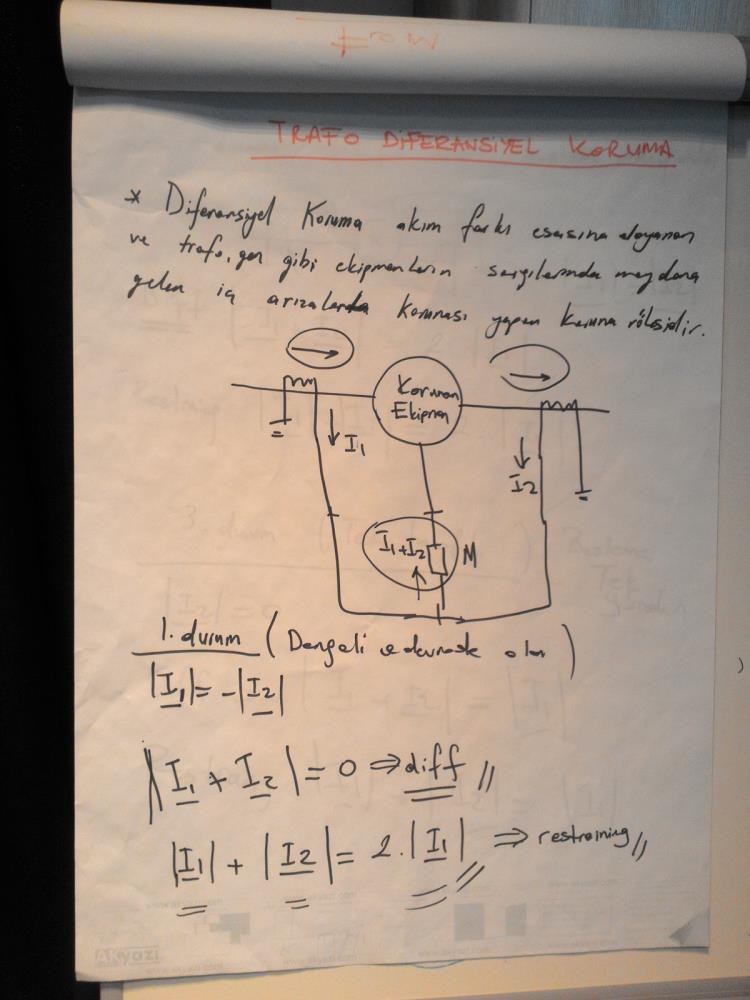 TRAFO DİFERANSİYEL KORUMA
* Diferansiyel Koruma akım farkı esasına dayanan
ve trafo, gen gibi ekipmanların sargılarında meydana
gelen iç arızalarda koruması yapan koruma rölesidir.
Korunan
Ekipman
I1
I2
I1+I2
M
1. durum (Dengeli olan)
|I1|=-|I2|
|I1 + I2| = 0 ⇒ diff //
|I1| + |I2| = 2.|I1| ⇒ restraining //
AKyazi
www.akyazi.com